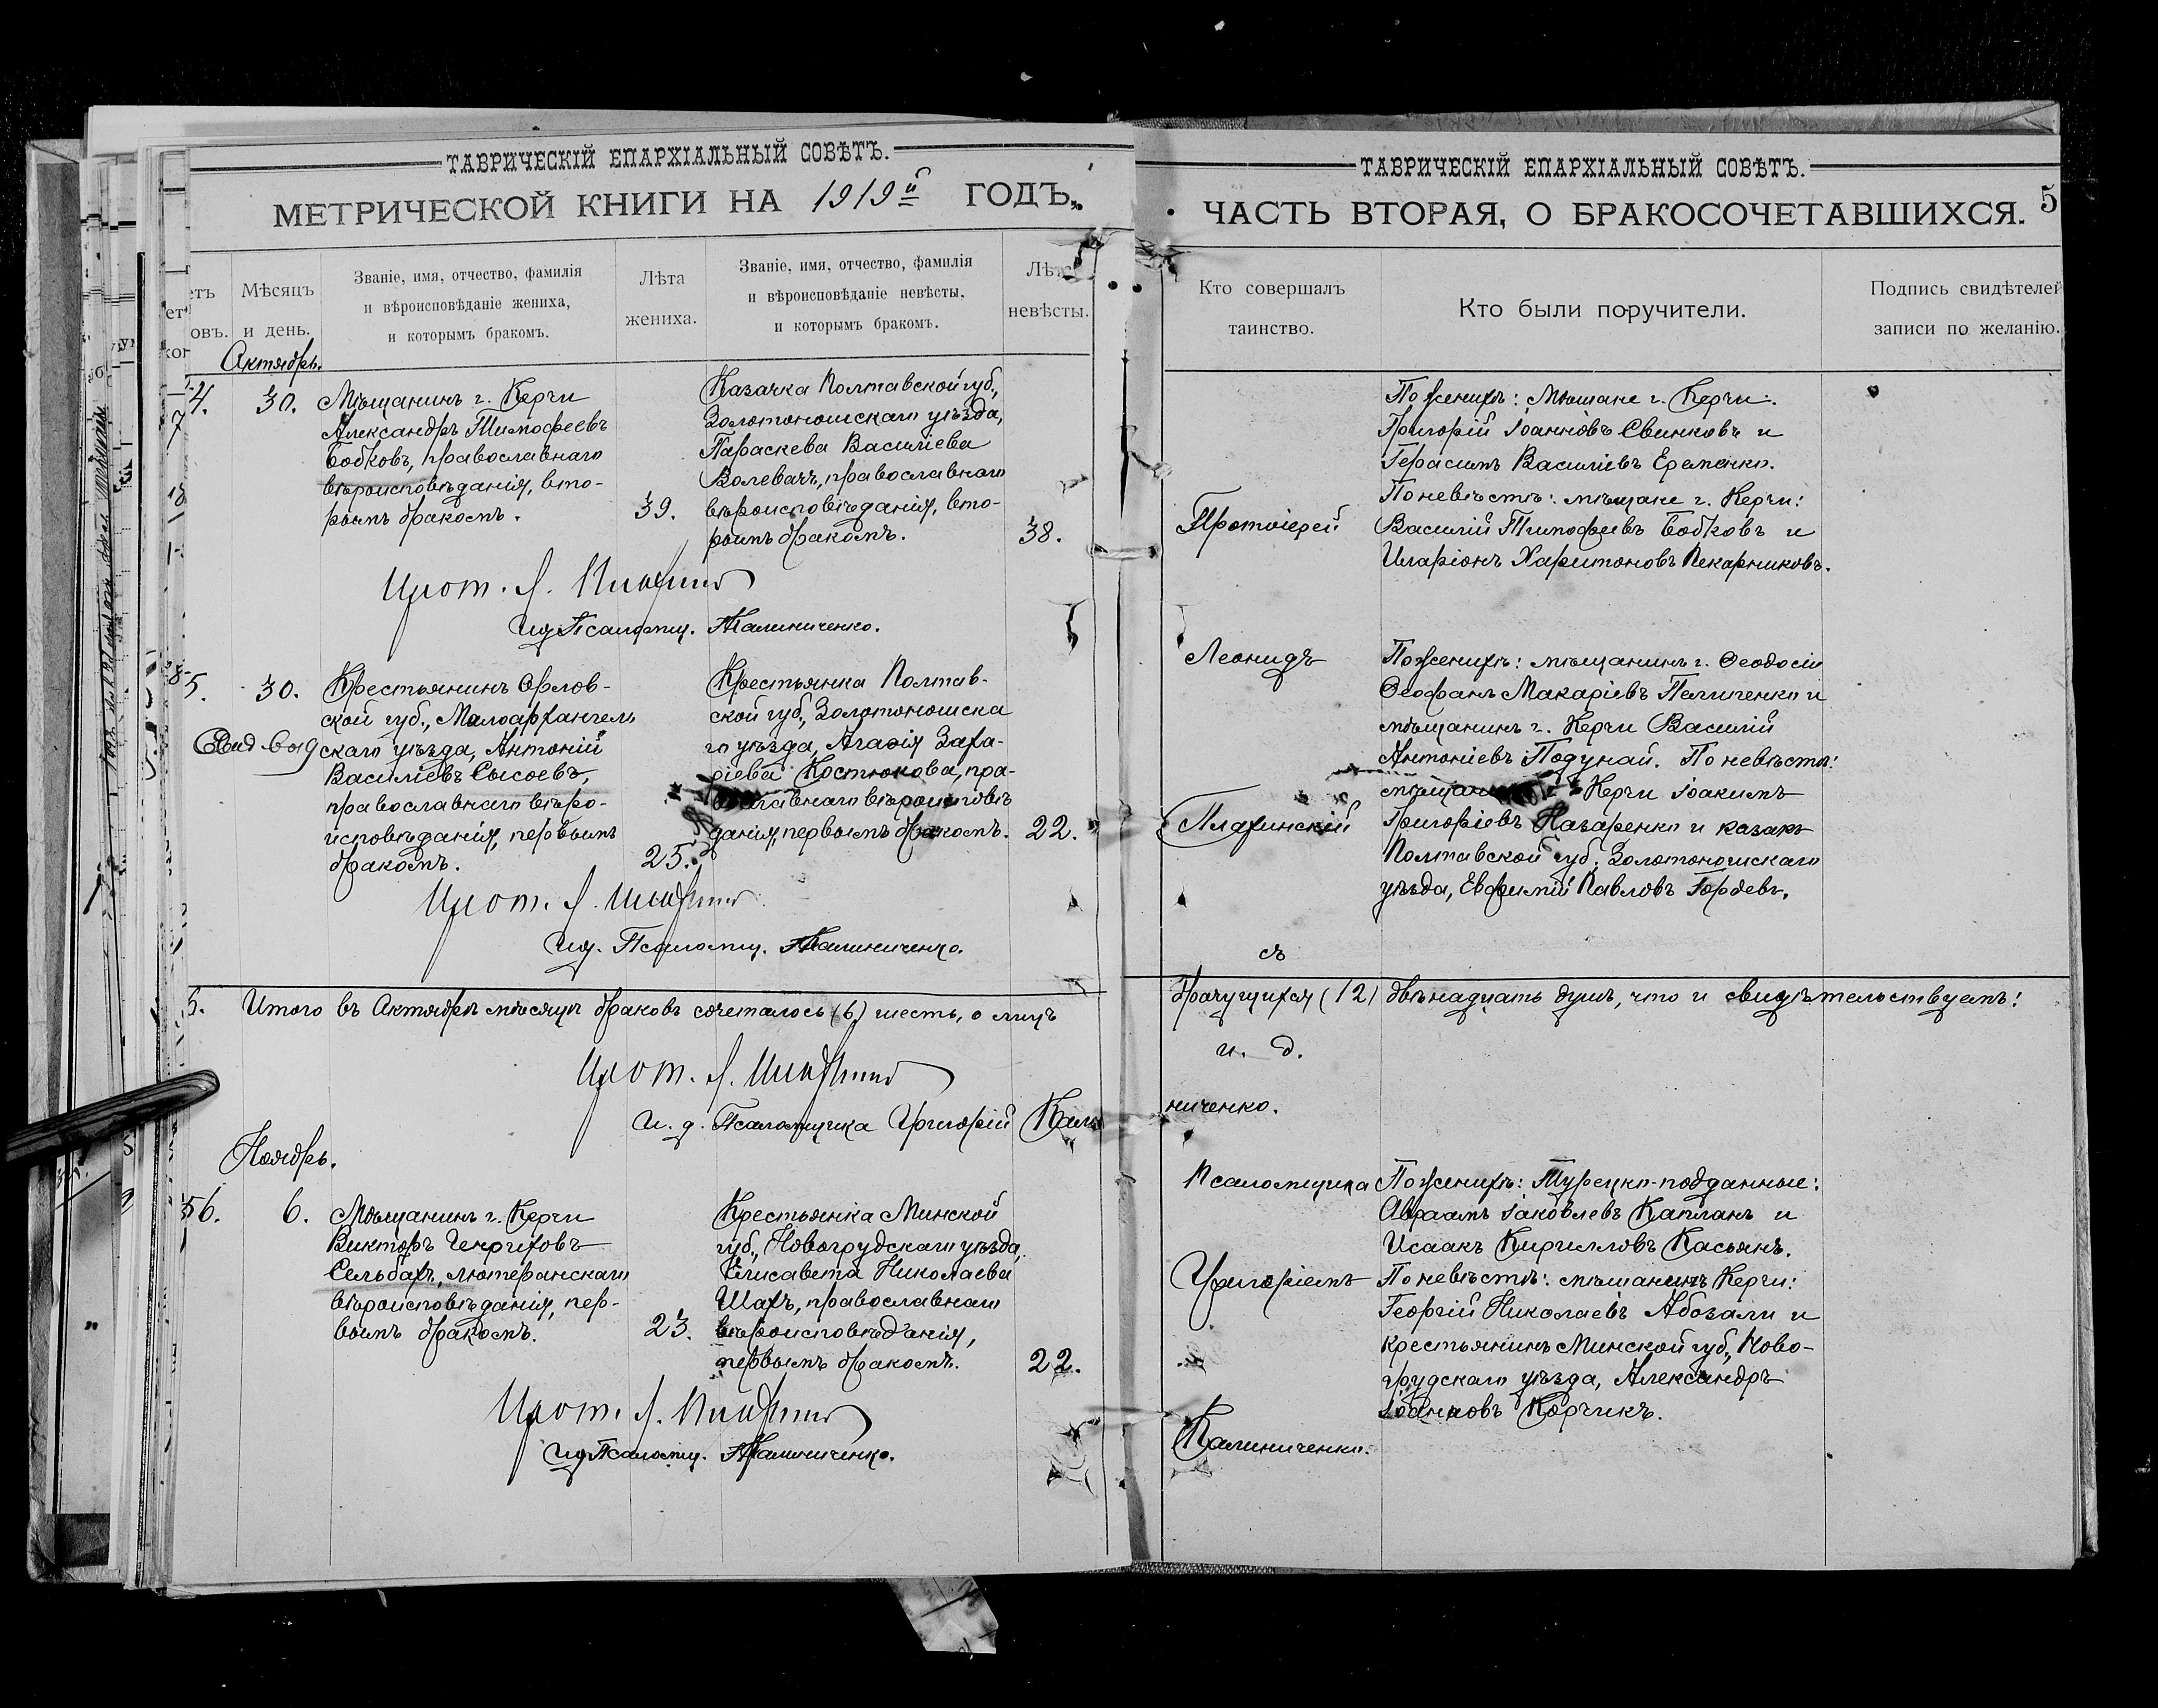 ТАВРИЧЕСКІЙ ЕПАРХІАЛЬНЫЙ СОВѢТЪ.
МЕТРИЧЕСКОЙ КНИГИ НА 1919й ГОДЪ.
Мѣсяцъ
и день.
Званіе, имя, отчество, фамилія
и вѣроисповѣданіе жениха,
и которымъ бракомъ.
Лѣта
жениха.
Званіе, имя, отчество, фамилія
и вѣроисповѣданіе невѣсты,
и которымъ бракомъ.
Лѣта
невѣсты.
Октябрь.
4. 30.
Мѣщанинъ г. Керчи
Александръ Тимофеевъ
Бобковъ, православнаго
вѣроисповѣданія, вто-
рымъ бракомъ.
39.
Казачка Полтавской губ.,
Золотоношскаго уѣзда,
Параскева Василіева
Волевачъ, православнаго
вѣроисповѣданія, вто-
рымъ бракомъ.
38.
Прот. Л.
Ид Псаломщ. Калиниченко.
5. 30.
Крестьянинъ Орлов-
ской губ., Малоархангель
скаго уѣзда, Антоній
Василіевъ Сысоевъ,
православнаго вѣро-
исповѣданія, первымъ
бракомъ.
25.
Крестьянка Полтав-
ской губ., Золотоношска
го уѣзда, Агафія Заха-
ріева Костюкова, пра-
вославнаго вѣроисповѣ
данія, первымъ бракомъ.
22.
Прот. Л.
Ид. Псаломщ. Калиниченко.
5. Итого въ Октябрѣ мѣсяцѣ браковъ сочеталось (6) шесть, а лицъ
Прот. Л.
И. д. Псаломщика Григорій Кали
Ноябрь.
56. 6.
Мѣщанинъ г. Керчи
Викторъ Генриховъ
Сельбахъ, лютеранскаго
вѣроисповѣданія, пер-
вымъ бракомъ.
23.
Крестьянка Минской
губ., Новогрудскаго уѣзда,
Елисавета Николаева
Шахъ, православнаго
вѣроисповѣданія,
первымъ бракомъ.
22.
Прот. Л.
Ид Псаломщ. Калиниченко.
ТАВРИЧЕСКІЙ ЕПАРХІАЛЬНЫЙ СОВѢТЪ.
ЧАСТЬ ВТОРАЯ, О БРАКОСОЧЕТАВШИХСЯ. 5
Кто совершалъ
таинство.
Кто были поручители.
Подпись свидѣтелей
записи по желанію.
Протоіерей
Леонидъ
съ
По женихѣ: мѣщане г. Керчи:
Григорій Іоанновъ Свинковъ и
Герасимъ Василіевъ Еременко.
По невѣстѣ: мѣщане г. Керчи:
Василій Тимофеевъ Бобковъ и
Иларіонъ Харитоновъ Пекарниковъ.
По женихѣ: мѣщанинъ г. Феодосіи
Феофанъ Макаріевъ Пеличенко и
мѣщанинъ г. Керчи Василій
Антоніевъ Подунай. По невѣстѣ:
Керчи Іоакимъ
Григоріевъ Назаренко и казакъ
Полтавской губ., Золотоношскаго
уѣзда, Евфимій Павловъ Гордевъ.
брачущихся (12) двѣнадцать душъ, что и свидѣтельствуемъ:
и. д.
ниченко.
Псаломщика
Григоріемъ
Калиниченко.
По женихѣ: Турецко-подданные:
Авраамъ Іаковлевъ Капланъ и
Исаакъ Кирилловъ Касьянъ.
По невѣстѣ: мѣщанинъ Керчи:
Георгій Николаевъ Абозали и
крестьянинъ Минской губ., Ново-
грудскаго уѣзда, Александръ
Іоанновъ Корчикъ.